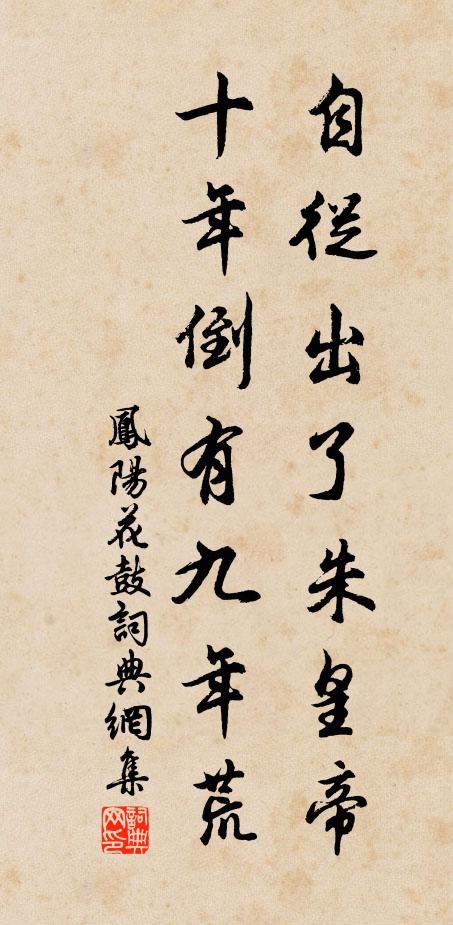 自從出了朱皇帝
十年倒有九年荒
鳳陽花鼓詞典網集
詞典网印